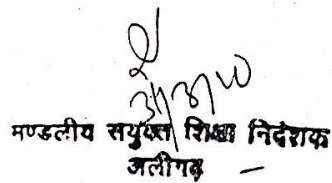 मण्डलीय संयुक्त शिक्षा निदेशक
अलीगढ़